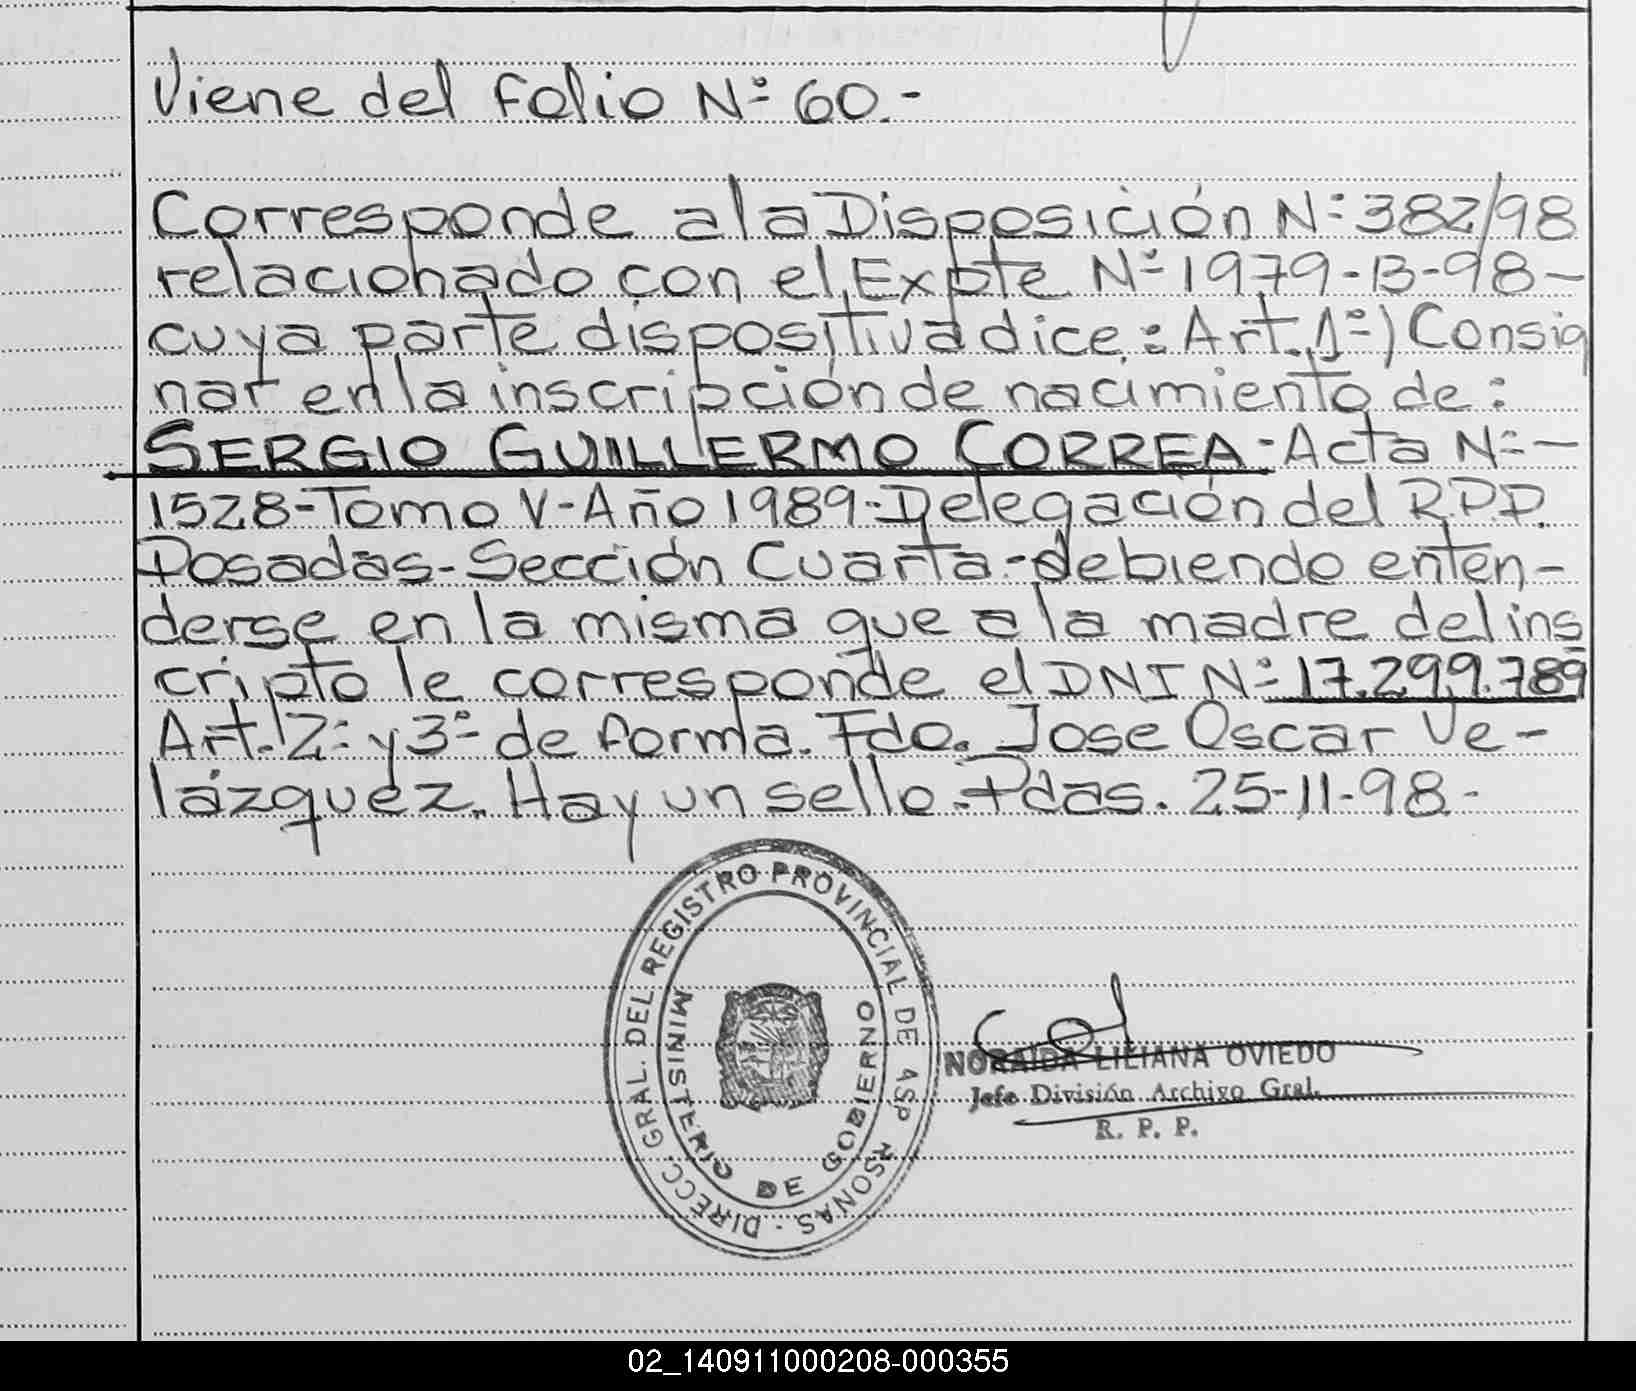 Viene del Folio Nº 60.-
Corresponde a la Disposición Nº 382/98
relacionado con el Expte Nº 1979-B-98-
cuya parte dispositiva dice: Art. 1º) Consig
nar en la inscripción de nacimiento de:
SERGIO GUILLERMO CORREA - Acta Nº -
1528 - Tomo V - Año 1989 - Delegación del R.P.P.
Posadas - Sección Cuarta - debiendo enten-
derse en la misma que a la madre del ins
cripto le corresponde el DNI Nº 17.299.789
Art. 2º y 3º de forma. Fdo. Jose Oscar Ve-
lázquez. Hay un sello. Pdas. 25-11-98-
DIRECC. GRAL. DEL REGISTRO PROVINCIAL DE ASP RSONAS -
MINISTERIO DE GOBIERNO
NORAIDA LILIANA OVIEDO
Jefe División Archivo Gral.
R. P. P.
02_140911000208-000355